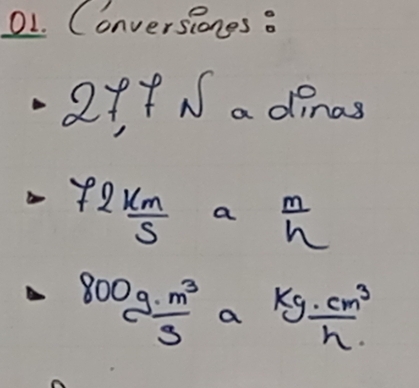 01. Conversiones:
- 27,7 N a dinas
- 72 Km/s a m/h
- 800 g.m³/s a Kg.cm³/h.